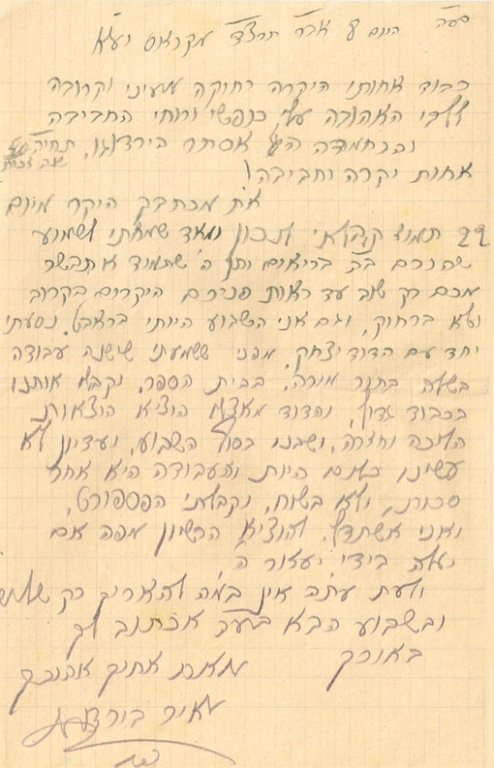 בס״ה היום ל אב תרצ״ד
כבוד אחותי היקרה רחוקה מעיני וקרובה
ללבי האהובה עלי כנפשי ורוחי החביבה
והנחמדה אסתר
אחות יקרה וחביבה!
את מכתבך היקר מיום
29 תמוז קבלתי לנכון ומאד שמחתי לשמוע
שהנכם בה בריאים ויתן ה׳ שתמיד אתבשר
מכם רק טוב עד ראות פניכם היקרים בקרוב
ולא ברחוק, וגם אני השבוע הייתי בראבט. נסעתי
יחד עם הדוד יצחק, מפני ששמעתי שישנה עבודה
בשלא בתור מורה, בבית הספר, וקבלו אותנו
בכבוד גדול, והדוד הוציא הוצאות
הליכה וחזרה, ושבנו בסוף השבוע, ועדיין לא
עשינו כלום היות והעבודה היא אחר
סכות, ולא בטוח, וקבלתי הפספורט,
ואני אשתדל להוציא הרשיון מפה אם
יעלה בידי יעזור ה׳
ולעת עתה אין במה להאריך רק
ובשבוע הבא אכתוב לך
באורך
ממני אחיך אהובך
מאיר